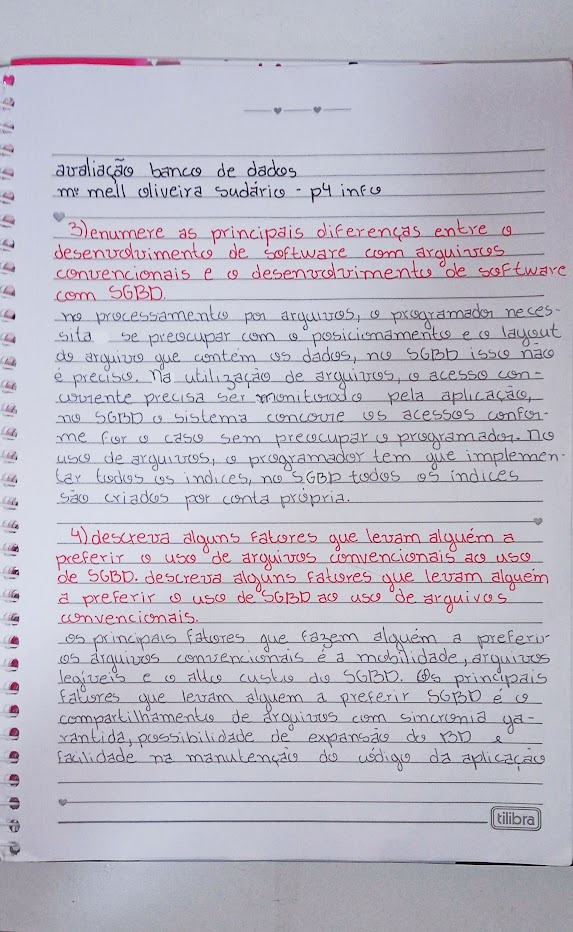 avaliação banco de dados
mª mell oliveira sudário - p4 info
3) enumere as principais diferenças entre o
desenvolvimento de software com arquivos
convencionais e o desenvolvimento de software
com SGBD.
no processamento por arquivos, o programador neces-
sita se preocupar com o posicionamento e o layout
do arquivo que contém os dados, no SGBD isso não
é preciso. na utilização de arquivos, o acesso con-
corrente precisa ser monitorado pela aplicação,
no SGBD o sistema concorre os acessos confor-
me for o caso sem preocupar o programador. no
uso de arquivos, o programador tem que implemen-
tar todos os indices, no SGBD todos os índices
são criados por conta própria.
4) descreva alguns fatores que levam alguém a
preferir o uso de arquivos convencionais ao uso
de SGBD. descreva alguns fatores que levam alguém
a preferir o uso de SGBD ao uso de arquivos
convencionais.
os principais fatores que fazem alguém a preferir
os arquivos convencionais é a mobilidade, arquivos
legíveis e o alto custo do SGBD. Os principais
fatores que levam alguem a preferir SGBD é o
compartilhamento de arquivos com sincronia ga-
rantida, possibilidade de expansão do BD e
facilidade na manutenção do código da aplicação
tilibra